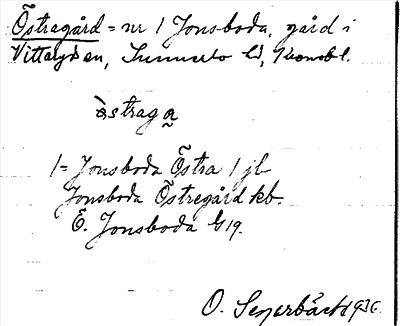 Östragård = nr 1 Jonsboda, gård i
Vittaryd sn, Sunnerbo hd, Kronobl.
östraga
1 = Jonsboda Östra 1 jb
Jonsboda Östregård kb.
Ö. Jonsboda G 19.
O. 1936.